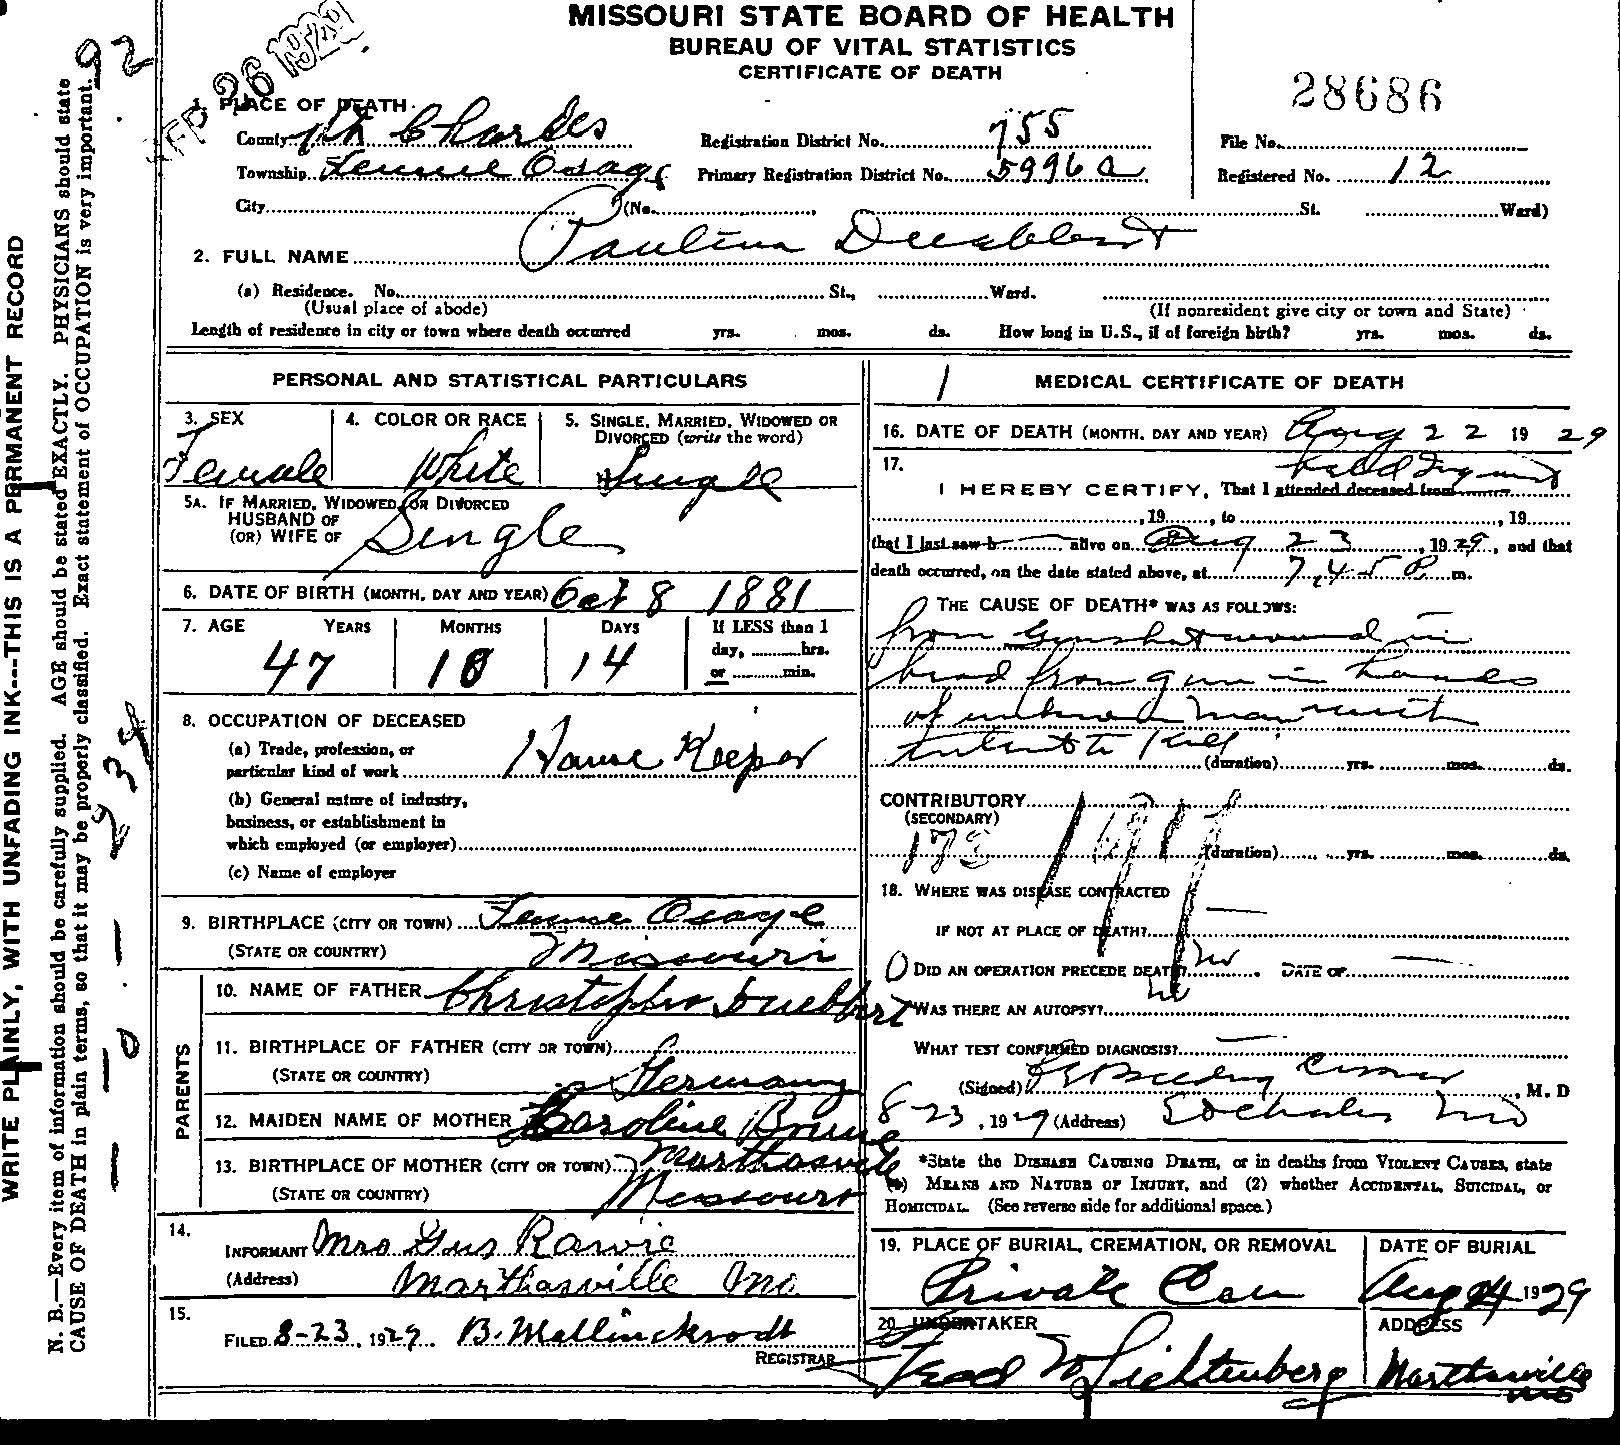 MISSOURI STATE BOARD OF HEALTH
BUREAU OF VITAL STATISTICS
CERTIFICATE OF DEATH
SEP 26 1929
92
28686
1. PLACE OF DEATH
County St Charles Registration District No. 755 File No.
Township Femme Osage Primary Registration District No. 5996a Registered No. 12
City (No. St. Ward)
2. FULL NAME Paulina Duebbert
(a) Residence. No. St., Ward.
(Usual place of abode) (If nonresident give city or town and State)
Length of residence in city or town where death occurred yrs. mos. ds. How long in U.S., if of foreign birth? yrs. mos. ds.
PERSONAL AND STATISTICAL PARTICULARS
3. SEX 4. COLOR OR RACE 5. SINGLE, MARRIED, WIDOWED OR
DIVORCED (write the word)
Female White Single
5A. IF MARRIED, WIDOWED, OR DIVORCED
HUSBAND OF
(OR) WIFE OF Single
6. DATE OF BIRTH (MONTH, DAY AND YEAR) Oct 8 1881
7. AGE YEARS MONTHS DAYS If LESS than 1
day, hrs.
or min.
47 10 14
8. OCCUPATION OF DECEASED
(a) Trade, profession, or
particular kind of work House Keeper
(b) General nature of industry,
business, or establishment in
which employed (or employer)
(c) Name of employer
9. BIRTHPLACE (CITY OR TOWN) Femme Osage
(STATE OR COUNTRY) Missouri
PARENTS
10. NAME OF FATHER Christopher Duebbert
11. BIRTHPLACE OF FATHER (CITY OR TOWN)
(STATE OR COUNTRY) Germany
12. MAIDEN NAME OF MOTHER Caroline Brune
13. BIRTHPLACE OF MOTHER (CITY OR TOWN) Marthasville
(STATE OR COUNTRY) Missouri
14.
INFORMANT Mrs Gus Rawie
(Address) Marthasville Mo
15.
FILED 8-23, 1929. B. Mallinckrodt
REGISTRAR
1 MEDICAL CERTIFICATE OF DEATH
16. DATE OF DEATH (MONTH, DAY AND YEAR) Aug 22 19 29
17. held Inquest
I HEREBY CERTIFY, That I attended deceased from
, 19 , to , 19
that I last saw h alive on Aug 23, 1929, and that
death occurred, on the date stated above, at 7,45 P m.
THE CAUSE OF DEATH* WAS AS FOLLOWS:
from Gunshot wound in
head from gun in hands
of unknown man with
intent to kill
(duration) yrs. mos. ds.
CONTRIBUTORY
(SECONDARY)
173
(duration) yrs. mos. ds.
18. WHERE WAS DISEASE CONTRACTED
IF NOT AT PLACE OF DEATH?
DID AN OPERATION PRECEDE DEATH? no DATE OF
WAS THERE AN AUTOPSY? no
WHAT TEST CONFIRMED DIAGNOSIS?
(Signed) Coroner, M. D
8-23, 1929 (Address) St Charles Mo
*State the DISEASE CAUSING DEATH, or in deaths from VIOLENT CAUSES, state
(1) MEANS AND NATURE OF INJURY, and (2) whether ACCIDENTAL, SUICIDAL, or
HOMICIDAL. (See reverse side for additional space.)
19. PLACE OF BURIAL, CREMATION, OR REMOVAL DATE OF BURIAL
Private Cem Aug 24 1929
20. UNDERTAKER ADDRESS
Fred W Lichtenberg Marthasville Mo
WRITE PLAINLY, WITH UNFADING INK---THIS IS A PERMANENT RECORD
N. B.—Every item of information should be carefully supplied. AGE should be stated EXACTLY. PHYSICIANS should state
CAUSE OF DEATH in plain terms, so that it may be properly classified. Exact statement of OCCUPATION is very important.